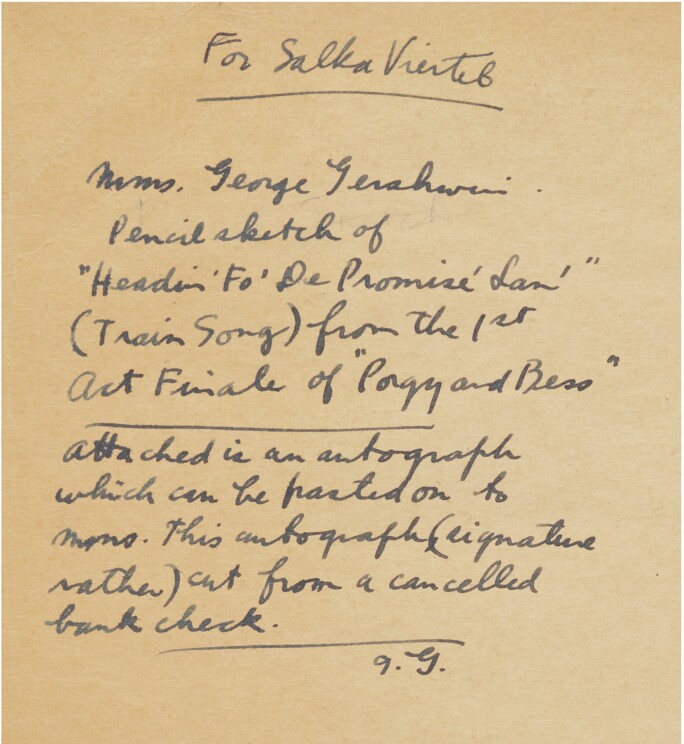 For Salka Viertel
mms. George Gershwin.
Pencil sketch of
"Headin' Fo' De Promise' Lan'"
(Train Song) from the 1st
Act Finale of "Porgy and Bess"
Attached is an autograph
which can be pasted on to
mms. This autograph (signature
rather) cut from a cancelled
bank check.
I. G.